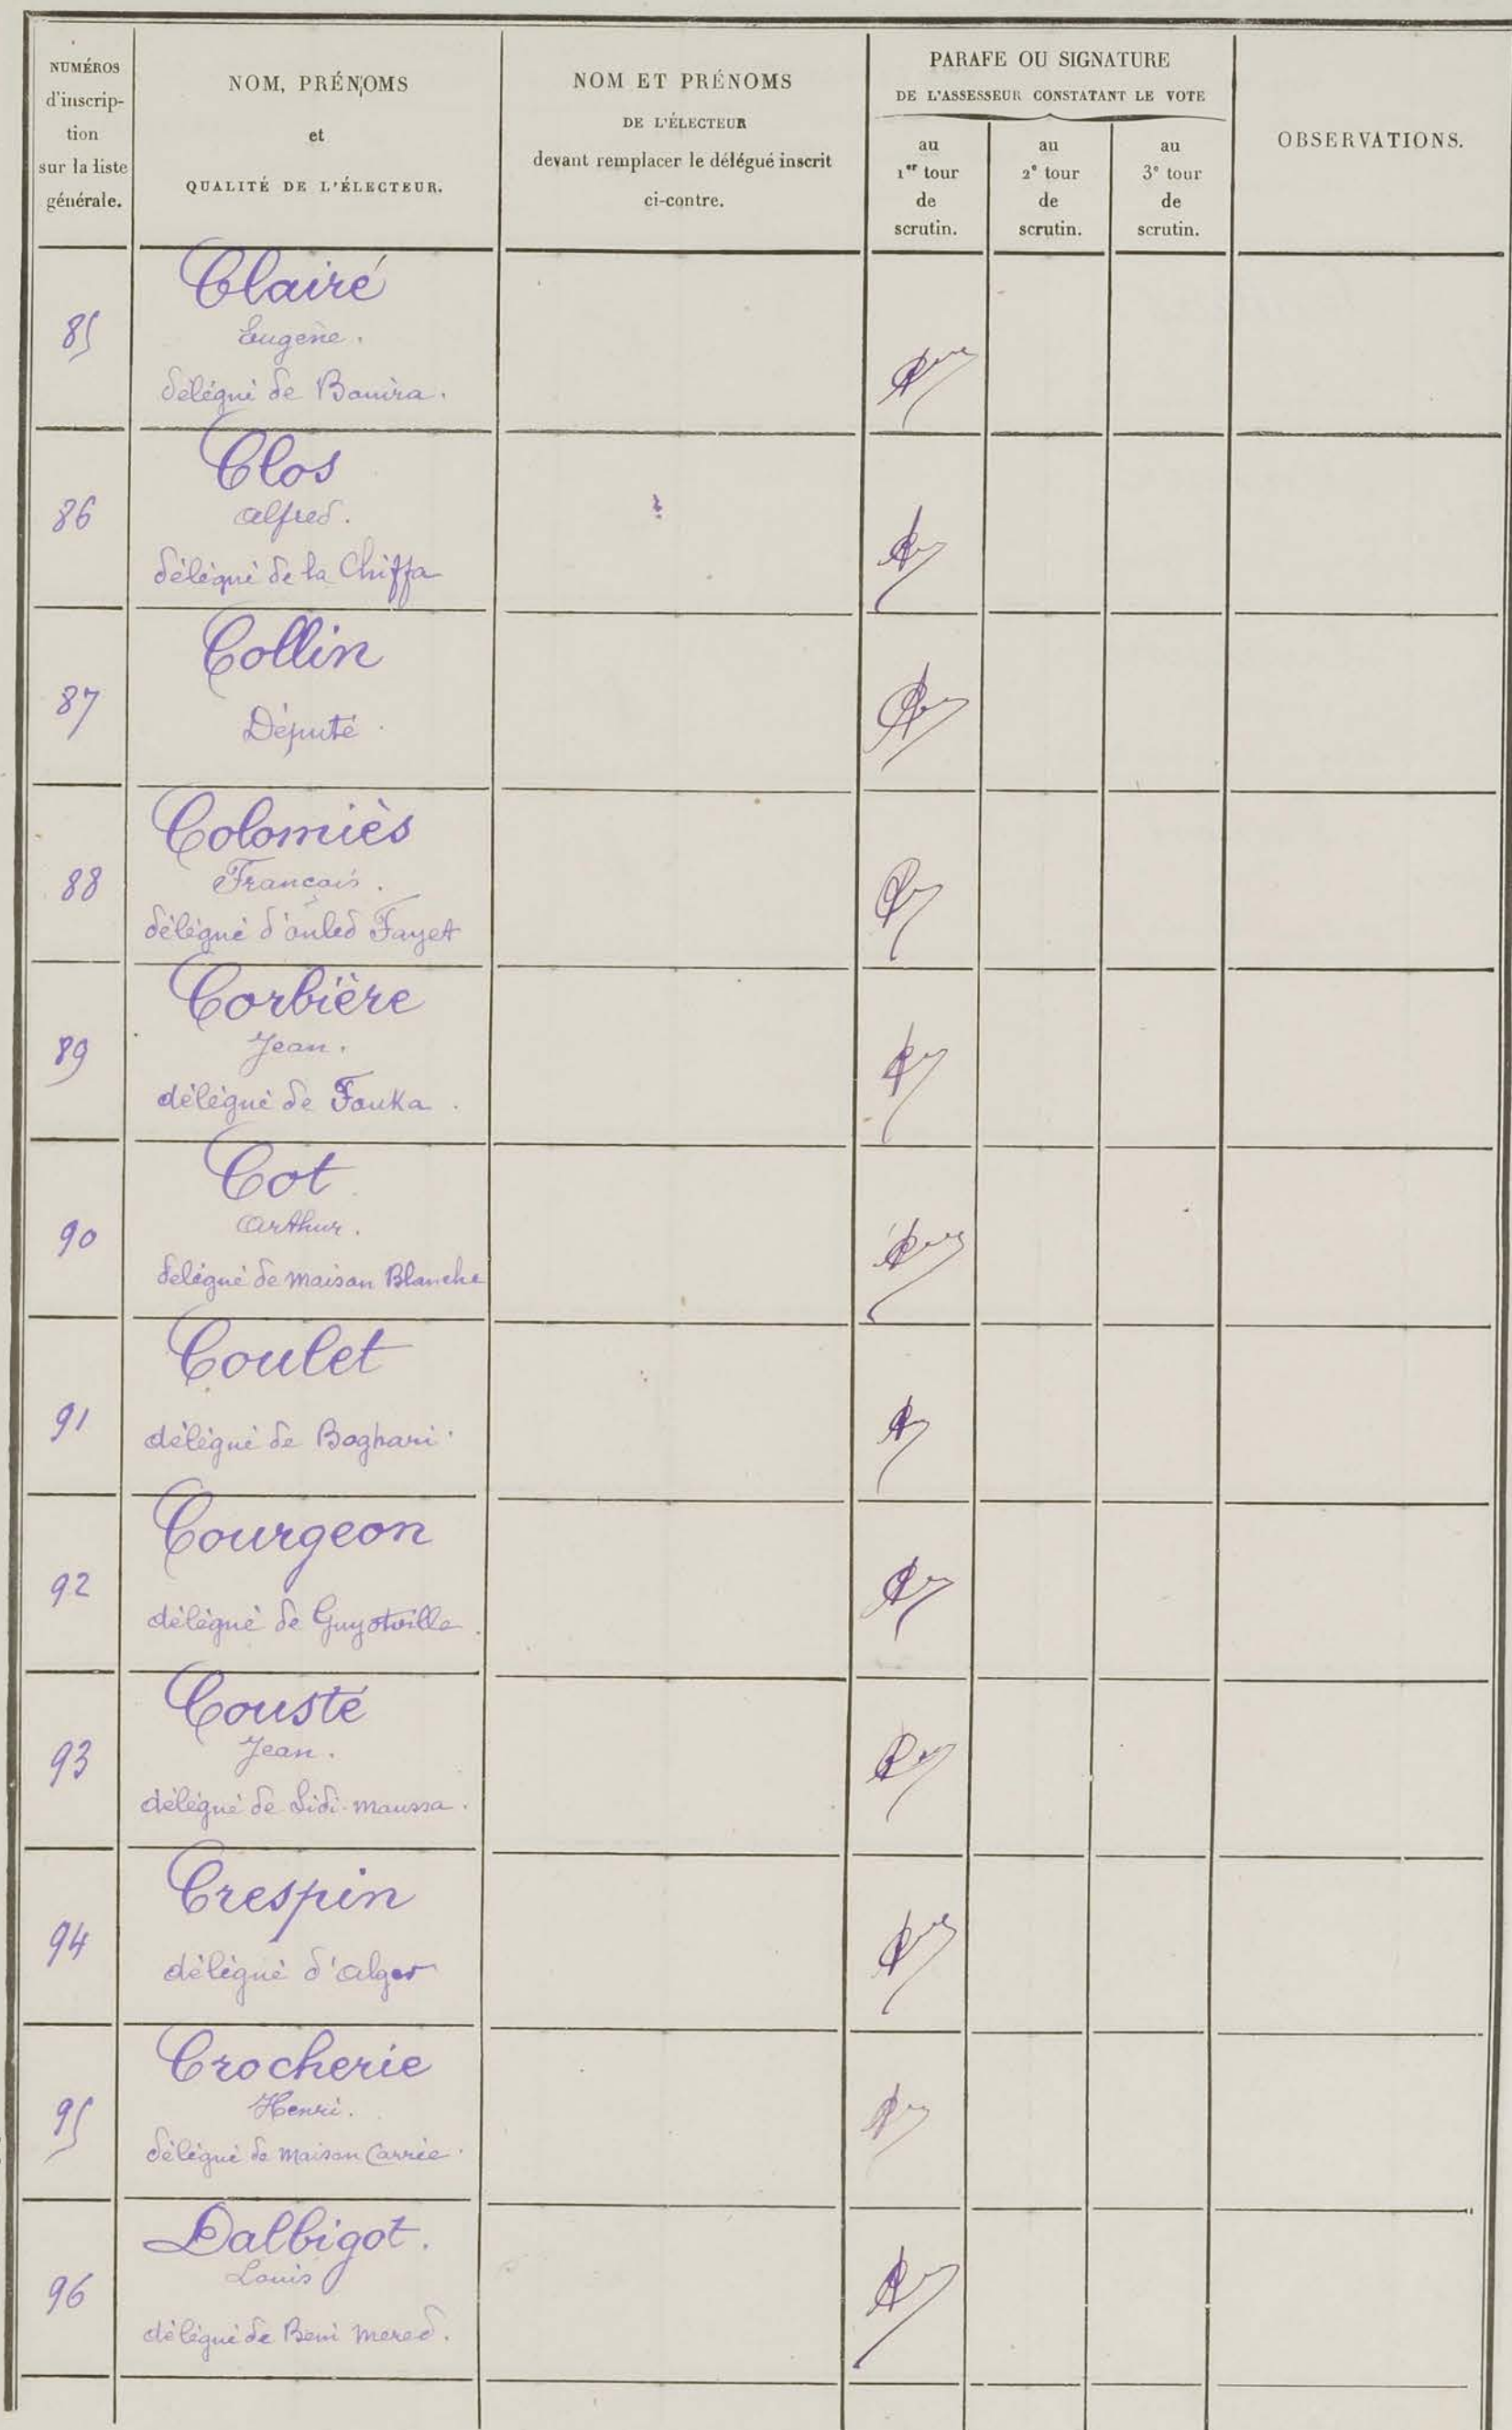 NUMÉROS
d'inscrip-
tion
sur la liste
générale.
NOM, PRÉNOMS
et
QUALITÉ DE L'ÉLECTEUR.
NOM ET PRÉNOMS
DE L'ÉLECTEUR
devant remplacer le délégué inscrit
ci-contre.
PARAFE OU SIGNATURE
DE L'ASSESSEUR CONSTATANT LE VOTE
au
1er tour
de
scrutin.
au
2e tour
de
scrutin.
au
3e tour
de
scrutin.
OBSERVATIONS.
85
Clairé
Eugène.
délégué de Bouïra.
86
Clos
Alfred.
délégué de la Chiffa
87
Collin
Député.
88
Colomiès
François.
délégué d'ouled Fayet
89
Corbière
Jean.
délégué de Fouka.
90
Cot
Arthur.
délégué de maison Blanche
91
Coulet
délégué de Boghari.
92
Courgeon
délégué de Guyotville.
93
Cousté
Jean.
délégué de Sidi-moussa.
94
Crespin
délégué d'Alger
95
Crocherie
Henri.
délégué de maison Carrée.
96
Dalbigot.
Louis
délégué de Beni mered.